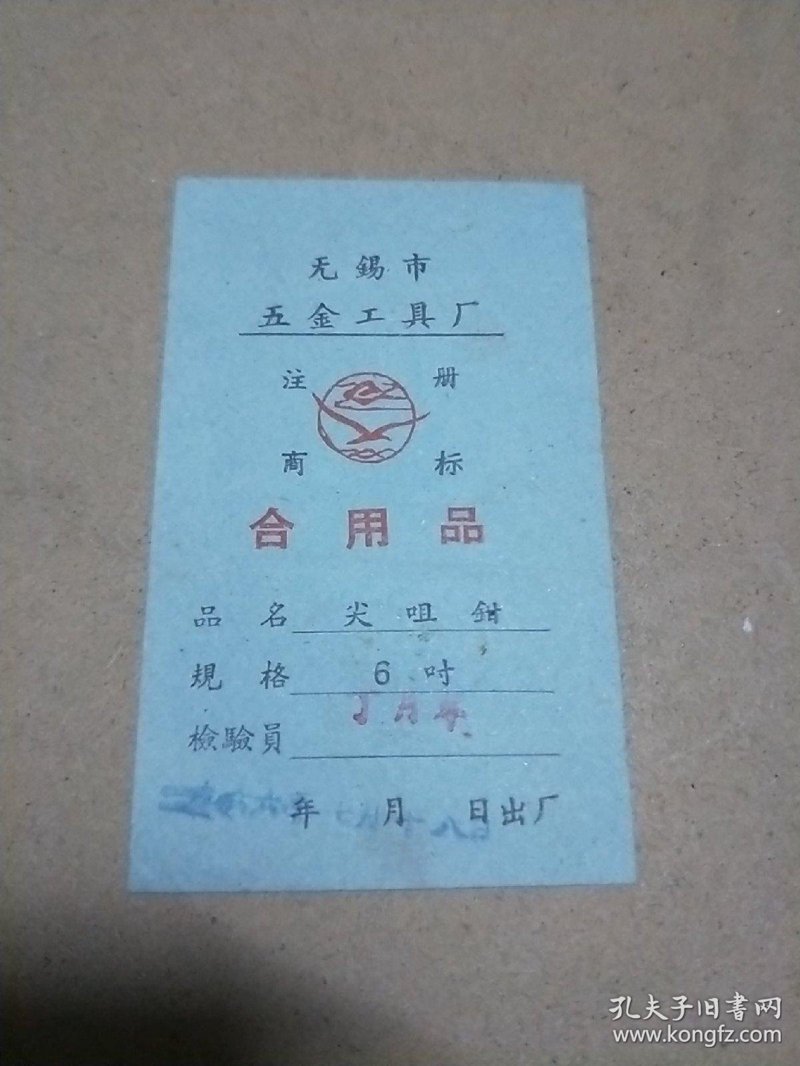 无錫市
五金工具厂
注 册
商 标
合用品
品名 尖咀鉗
規格 6吋
檢驗員
年 七月十八日出厂
孔夫子旧书网
www.kongfz.com